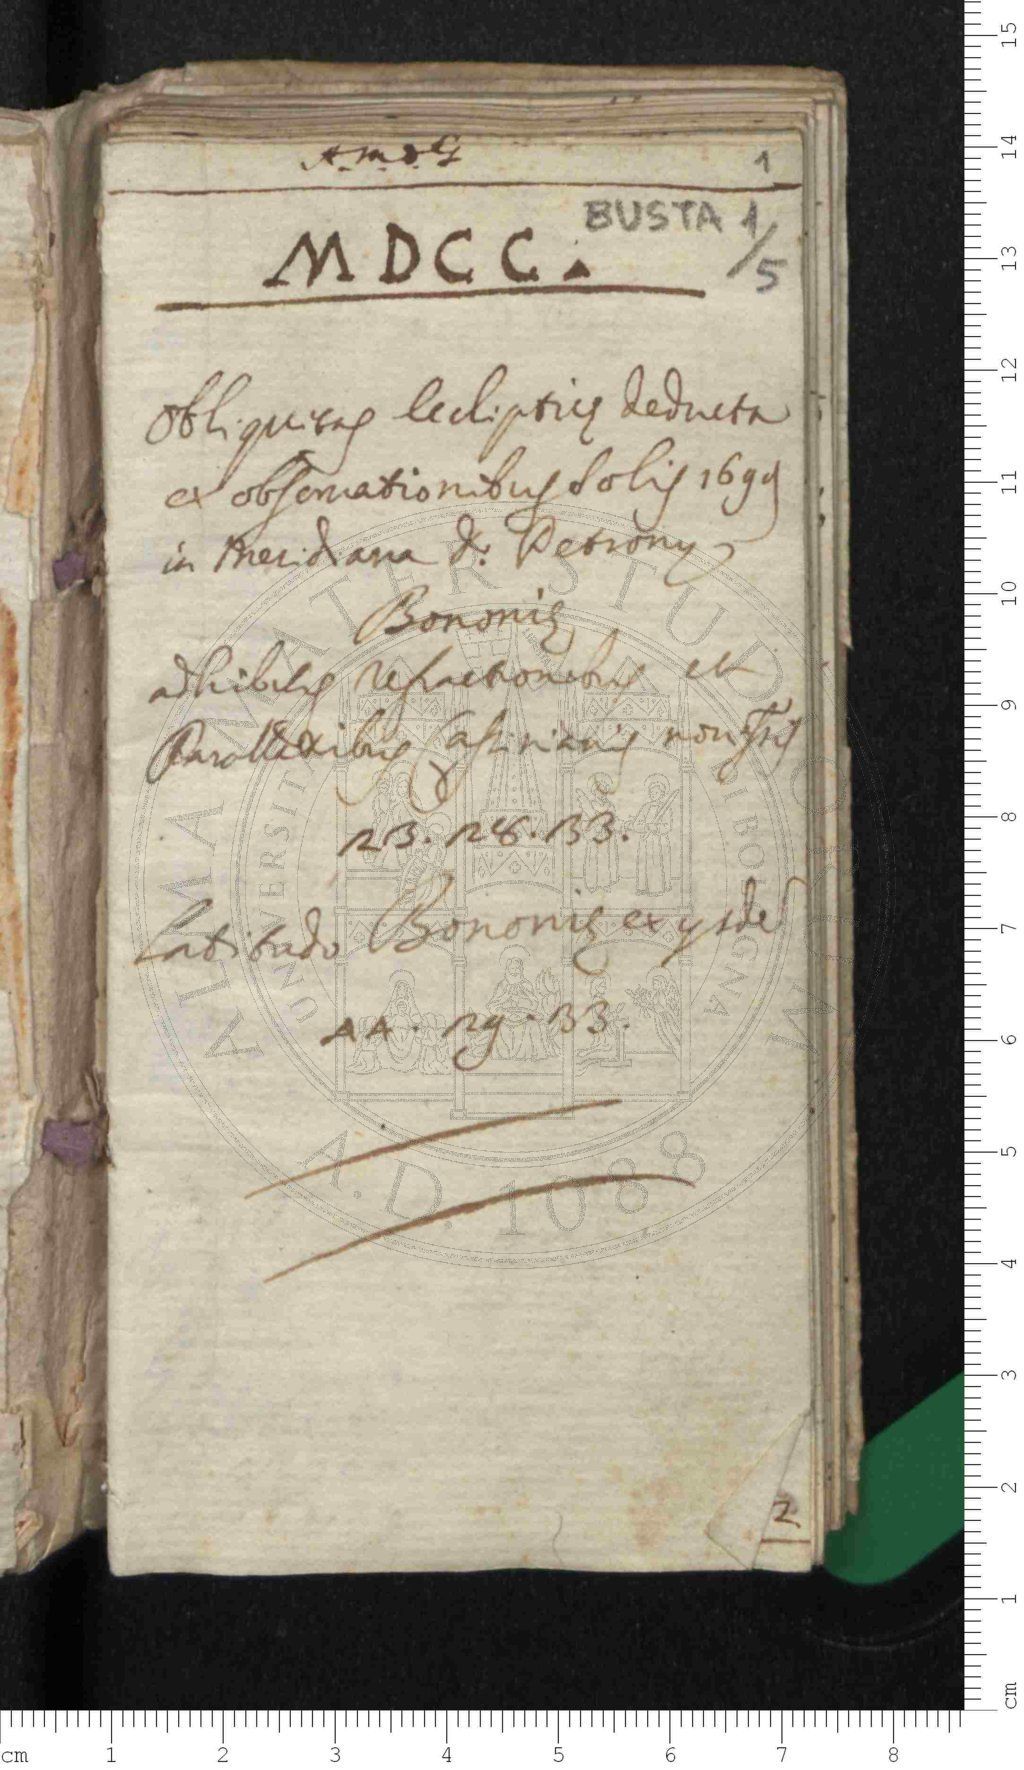 A. M. D. G
1
BUSTA 1/5
MDCC.
Obliquitas Eclipticę deducta
ex observationibus Solis 1699
in Meridiana D. Petronij
Bononię
adhibitis refractionibus et
Parallaxibus Cassinianis
23. 28. 33.
Latitudo Bononię ex ysdē
44. 29. 33.
2
ALMA MATER STUDIORUM
UNIVERSITÀ DI BOLOGNA
A.D. 1088
cm 1 2 3 4 5 6 7 8
15
14
13
12
11
10
9
8
7
6
5
4
3
2
1
cm